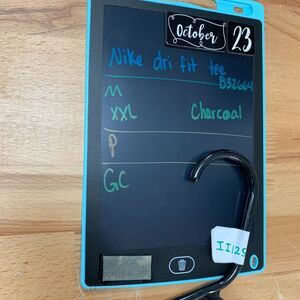 October 23
Nike dri fit tee
832664
M
XXL Charcoal
P
GC